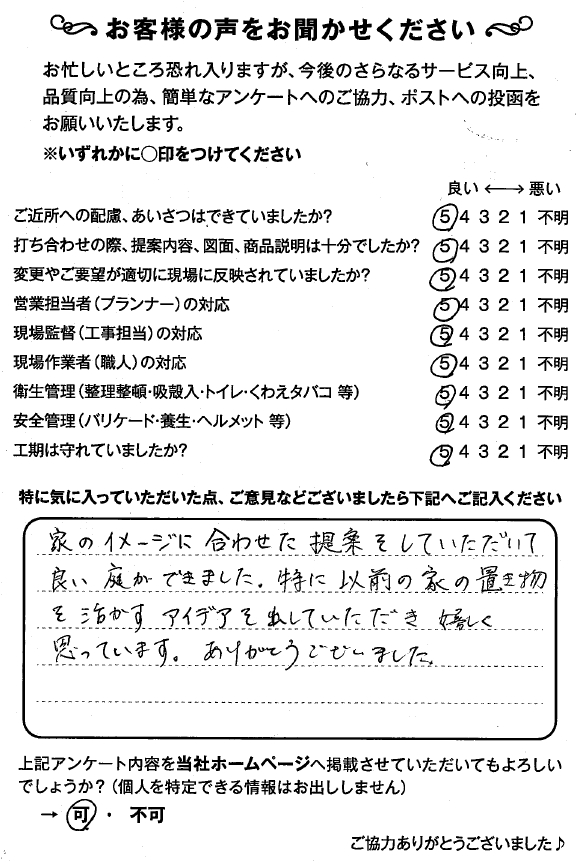 お客様の声をお聞かせください
お忙しいところ恐れ入りますが、今後のさらなるサービス向上、
品質向上の為、簡単なアンケートへのご協力、ポストへの投函を
お願いいたします。
※いずれかに○印をつけてください
良い ←→ 悪い
ご近所への配慮、あいさつはできていましたか? 5 4 3 2 1 不明
打ち合わせの際、提案内容、図面、商品説明は十分でしたか? 5 4 3 2 1 不明
変更やご要望が適切に現場に反映されていましたか? 5 4 3 2 1 不明
営業担当者(プランナー)の対応 5 4 3 2 1 不明
現場監督(工事担当)の対応 5 4 3 2 1 不明
現場作業者(職人)の対応 5 4 3 2 1 不明
衛生管理(整理整頓・吸殻入・トイレ・くわえタバコ 等) 5 4 3 2 1 不明
安全管理(バリケード・養生・ヘルメット 等) 5 4 3 2 1 不明
工期は守れていましたか? 5 4 3 2 1 不明
特に気に入っていただいた点、ご意見などございましたら下記へご記入ください
家のイメージに合わせた提案をしていただいて
良い庭ができました。特に以前の家の置き物
を活かすアイデアを出していただき嬉しく
思っています。ありがとうございました。
上記アンケート内容を当社ホームページへ掲載させていただいてもよろしい
でしょうか?(個人を特定できる情報はお出ししません)
→ 可 ・ 不可
ご協力ありがとうございました♪